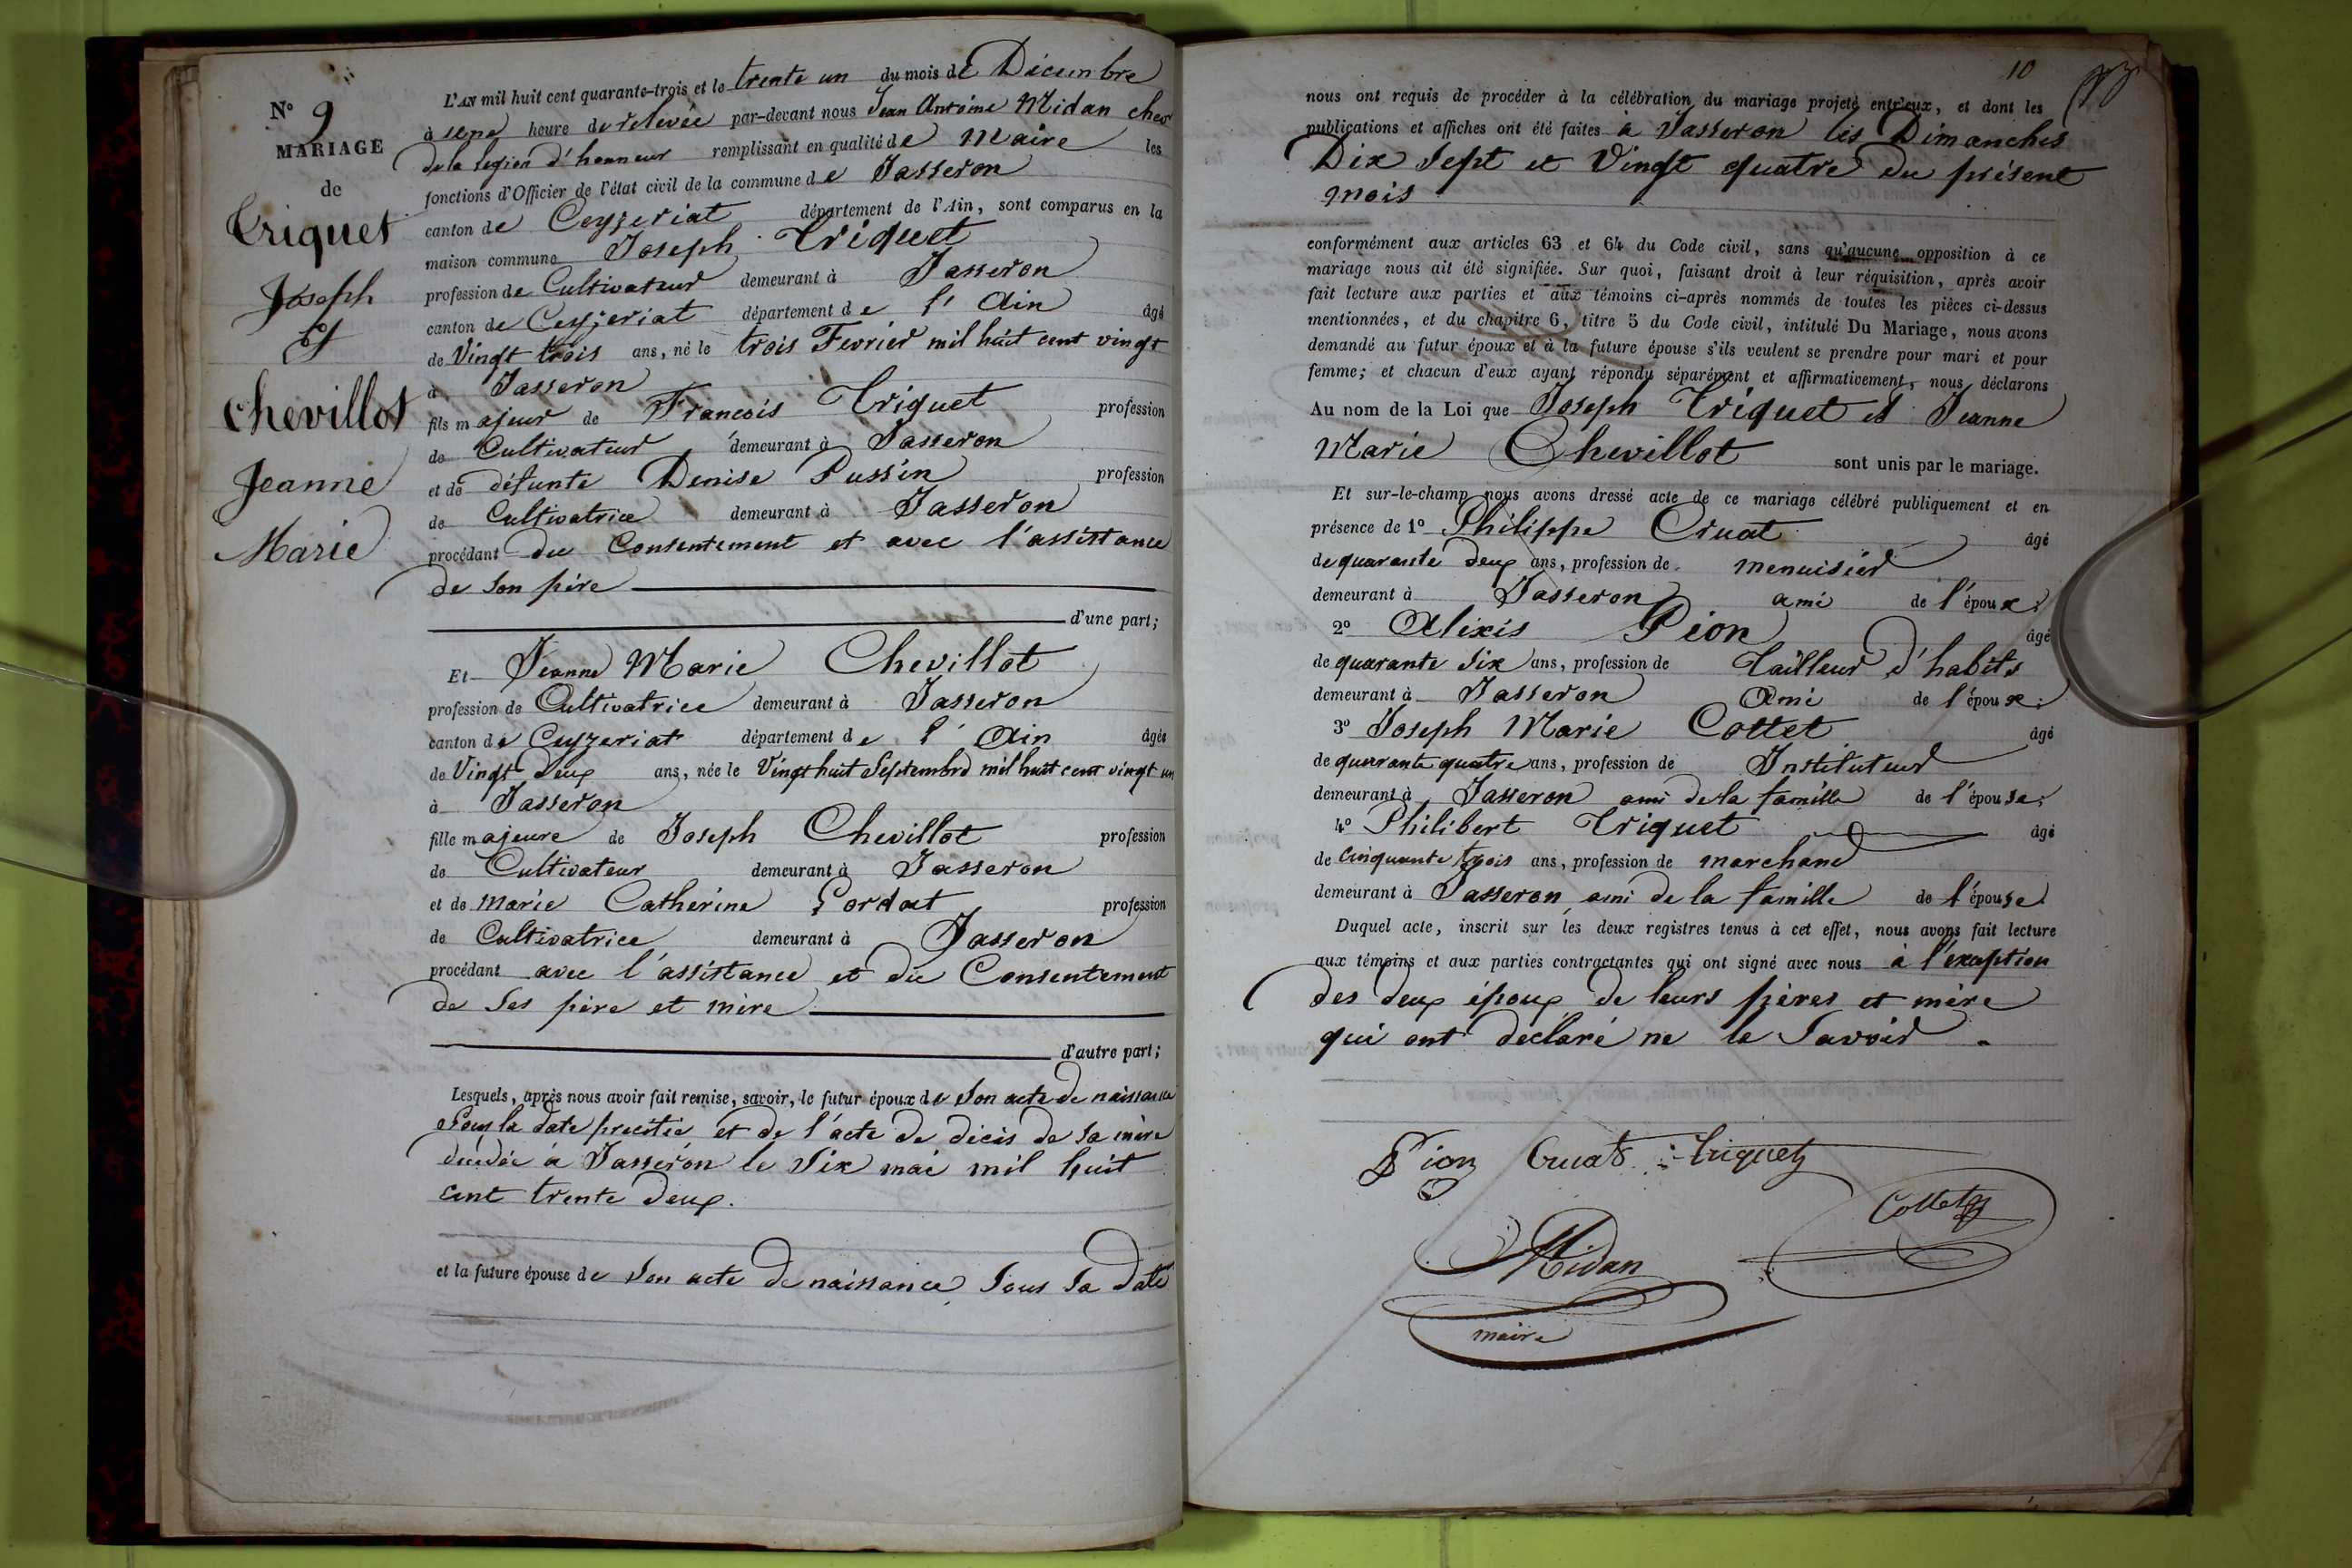 N° 9
MARIAGE
de
Triquet
Joseph
Et
Chevillot
Jeanne
Marie
L'AN mil huit cent quarante-trois et le trente un du mois de Décembre
à heure de relevée par-devant nous Jean Antoine Midan chev
de la legion d'honneur remplissant en qualité de Maire les
fonctions d'Officier de l'état civil de la commune de Jasseron
canton de Ceyzeriat département de l'Ain, sont comparus en la
maison commune Joseph Triquet
profession de Cultivateur demeurant à Jasseron
canton de Ceyzeriat département de l'Ain âgé
de Vingt trois ans, né le trois Fevrier mil huit cent vingt
à Jasseron
fils majeur de Francois Triquet profession
de Cultivateur demeurant à Jasseron
et de défunte Denise Pussin profession
de Cultivatrice demeurant à Jasseron
procédant du Consentement et avec l'assistance
de son père
d'une part;
Et Jeanne Marie Chevillot
profession de Cultivatrice demeurant à Jasseron
canton de Ceyzeriat département de l'Ain âgée
de Vingt Deux ans, née le Vingt huit Septembre mil huit cent vingt un
à Jasseron
fille majeure de Joseph Chevillot profession
de Cultivateur demeurant à Jasseron
et de Marie Catherine profession
de Cultivatrice demeurant à Jasseron
procédant avec l'assistance et du Consentement
de ses père et mère
d'autre part;
Lesquels, après nous avoir fait remise, savoir, le futur époux de son acte de naissance
Sous la date precitée et de l'acte de décès de sa mère
décédée à Jasseron le Six mai mil huit
cent trente deux.
et la future épouse de son acte de naissance sous sa date
10
nous ont requis de procéder à la célébration du mariage projeté entr'eux, et dont les
publications et affiches ont été faites à Jasseron les Dimanches
Dix Sept et Vingt quatre du présent
mois
conformément aux articles 63 et 64 du Code civil, sans qu'aucune opposition à ce
mariage nous ait été signifiée. Sur quoi, faisant droit à leur réquisition, après avoir
fait lecture aux parties et aux témoins ci-après nommés de toutes les pièces ci-dessus
mentionnées, et du chapitre 6, titre 5 du Code civil, intitulé Du Mariage, nous avons
demandé au futur époux et à la future épouse s'ils veulent se prendre pour mari et pour
femme; et chacun d'eux ayant répondu séparément et affirmativement, nous déclarons
Au nom de la Loi que Joseph Triquet et Jeanne
Marie Chevillot sont unis par le mariage.
Et sur-le-champ nous avons dressé acte de ce mariage célébré publiquement et en
présence de 1° Philippe Cruat âgé
de quarante deux ans, profession de menuisier
demeurant à Jasseron ami de l'époux;
2° Alexis Pion âgé
de quarante six ans, profession de Tailleur d'habits
demeurant à Jasseron Ami de l'époux;
3° Joseph Marie Cottet âgé
de quarante quatre ans, profession de Instituteur
demeurant à Jasseron ami de la famille de l'épouse;
4° Philibert Triquet âgé
de cinquante trois ans, profession de marchand
demeurant à Jasseron ami de la famille de l'épouse
Duquel acte, inscrit sur les deux registres tenus à cet effet, nous avons fait lecture
aux témoins et aux parties contractantes qui ont signé avec nous à l'exeption
des deux époux de leurs pères et mère
qui ont declaré ne le Savoir.
Pion Cruat Triquet
Cottet
Midan
maire